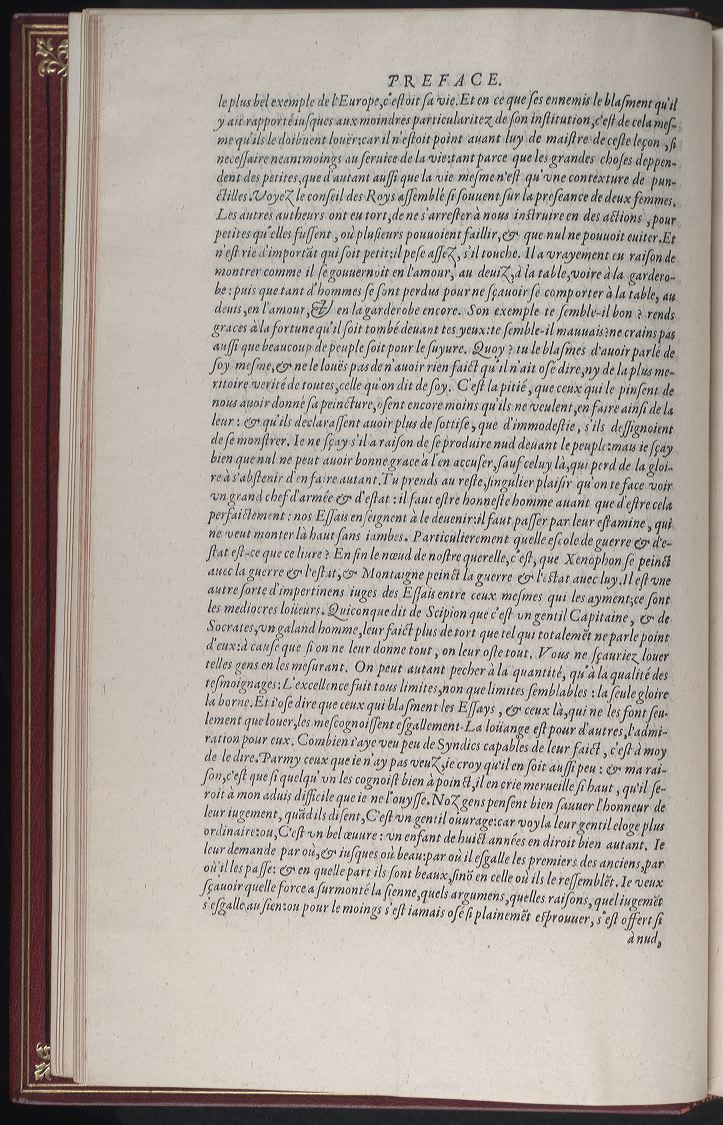 PREFACE.
le plus bel exemple de l'Europe,c'eſtoit ſa vie.Et en ce que ſes ennemis le blaſment qu'il
y ait rapporté iuſques aux moindres particularitez de ſon inſtitution,c'eſt de cela meſ-
me qu'ils le doibuent louër:car il n'eſtoit point auant luy de maiſtre de ceſte leçon ,ſi
neceſſaire neantmoings au ſeruice de la vie:tant parce que les grandes choſes deppen-
dent des petites,que d'autant auſſi que la vie meſmen'eſt qu'vne contexture de pun-
ctilles.Voyez le conſeil des Roys aſſemblé ſi ſouuent ſur la preſeance de deux femmes.
Les autres autheurs ont eu tort,de ne s'arreſter à nous inſtruire en des actions ,pour
petites qu'elles fuſſent , où pluſieurs pouuoient faillir,& que nul ne pouuoit euiter.Et
n'eſt rië d'importāt qui ſoit petit:il peſe aſſez, s'il touche. Il a vrayement eu raiſon de
montrer comme il ſe gouuernoit en l'amour, au deuiz,à la table,voire à la gardero-
be : puis que tant d'hommes ſe ſont perdus pour ne ſçauoir ſe comporter à la table, au
deuis ,en l'amour,& en la garderobe encore. Son exemple te ſemble-il bon ? rends
graces à la fortune qu'il ſoit tombé deuant tes yeux:te ſemble-il mauuais?ne crains pas
auſſi que beaucoup de peuple ſoit pour le ſuyure. Quoy ? tu le blaſmes d'auoir parlé de
ſoy meſme,& ne le louës pas de n'auoir rien faict qu'il n'ait oſé dire,ny de la plus me-
ritoire verité de toutes,celle qu'on dit de ſoy. C'eſt la pitié , que ceux qui le pinſent de
nous auoir donné ſa peincture,oſent encore moins qu'ils ne veulent,en faire ainſi de la
leur : & qu'ils declaraſſent auoir plus de ſottiſe, que d'immodeſtie, s'ils deſſignoient
de ſe monſtrer. Ie ne ſçay s'il a raiſon de ſe produire nud deuant le peuple:mais ie ſçay
bien que nul ne peut auoir bonne grace à l'en accuſer,ſauf celuy là,qui perd de la gloi-
re à s'abſtenir d'en faire autant.Tu prends au reſte,ſingulier plaiſir qu'on te face voir
vn grand chef d'armée & d'eſtat : il faut eſtre honneſte homme auant que d'eſtre cela
perfaictement : nos Eſſais enſeignent à le deuenir:il faut paſſer par leur eſtamine , qui
ne veut monter là haut ſans iambes. Particulierement quelle eſcole de guerre & d'e-
ſtat eſt-ce que ce liure? En fin le nœud de noſtre querelle,c'eſt, que Xenophon ſe peinct
auec la guerre & l'eſtat,& Montaigne peinct la guerre & l'eſtat auec luy.Il eſt vne
autre ſorte d'impertinens iuges des Eſſais entre ceux meſmes qui les ayment;ce ſont
les mediocres loüeurs. Quiconque dit de Scipion que c'eſt vn gentil Capitaine, & de
Socrates,vn galand homme,leur faict plus de tort que tel qui totalemēt ne parle point
d'eux:à cauſe que ſi on ne leur donne tout , on leur oſte tout. Vous ne ſçauriez louer
telles gens en les meſurant. On peut autant pecher à la quantité, qu'à la qualité des
teſmoignages:L'excellence fuit tous limites,non que limites ſemblables : la ſeule gloire
la borne.Et i'oſe dire que ceux qui blaſment les Eſſays , & ceux là,qui ne les font ſeu-
lement que louer,les meſcognoiſſent eſgallement.La loüange eſt pour d'autres,l'admi-
ration pour eux. Combien i'aye veu peu de Syndics capables de leur faict , c'eſt à moy
de le dire.Parmy ceux que ie n'ay pas veuz,ie croy qu'il en ſoit auſſi peu : & ma rai-
ſon,c'eſt que ſi quelqu'vn les cognoiſt bien à poinct,il en crie merueille ſi haut , qu'il ſe-
roit à mon aduis difficile que ie ne l'ouyſſe.Noz gens penſent bien ſauuer l'honneur de
leur iugement, quād ils diſent,C'eſt vn gentil oüurage:car voyla leur gentil eloge plus
ordinaire:ou,C'eſt vn bel œuure : vn enfant de huict années en diroit bien autant. Ie
leur demande par où,& iuſques où beau:par où il eſgalle les premiers des anciens,par
où il les paſſe: & en quelle part ils ſont beaux,ſinō en celle où ils le reſſemblēt. Ie veux
ſçauoir quelle force a ſurmonté la ſienne,quels argumens,quelles raiſons, quel iugemēt
s'eſgalle au ſien:ou pour le moings s'eſt iamais oſé ſi plainemēt eſprouuer, s'eſt offert ſi
à nud,